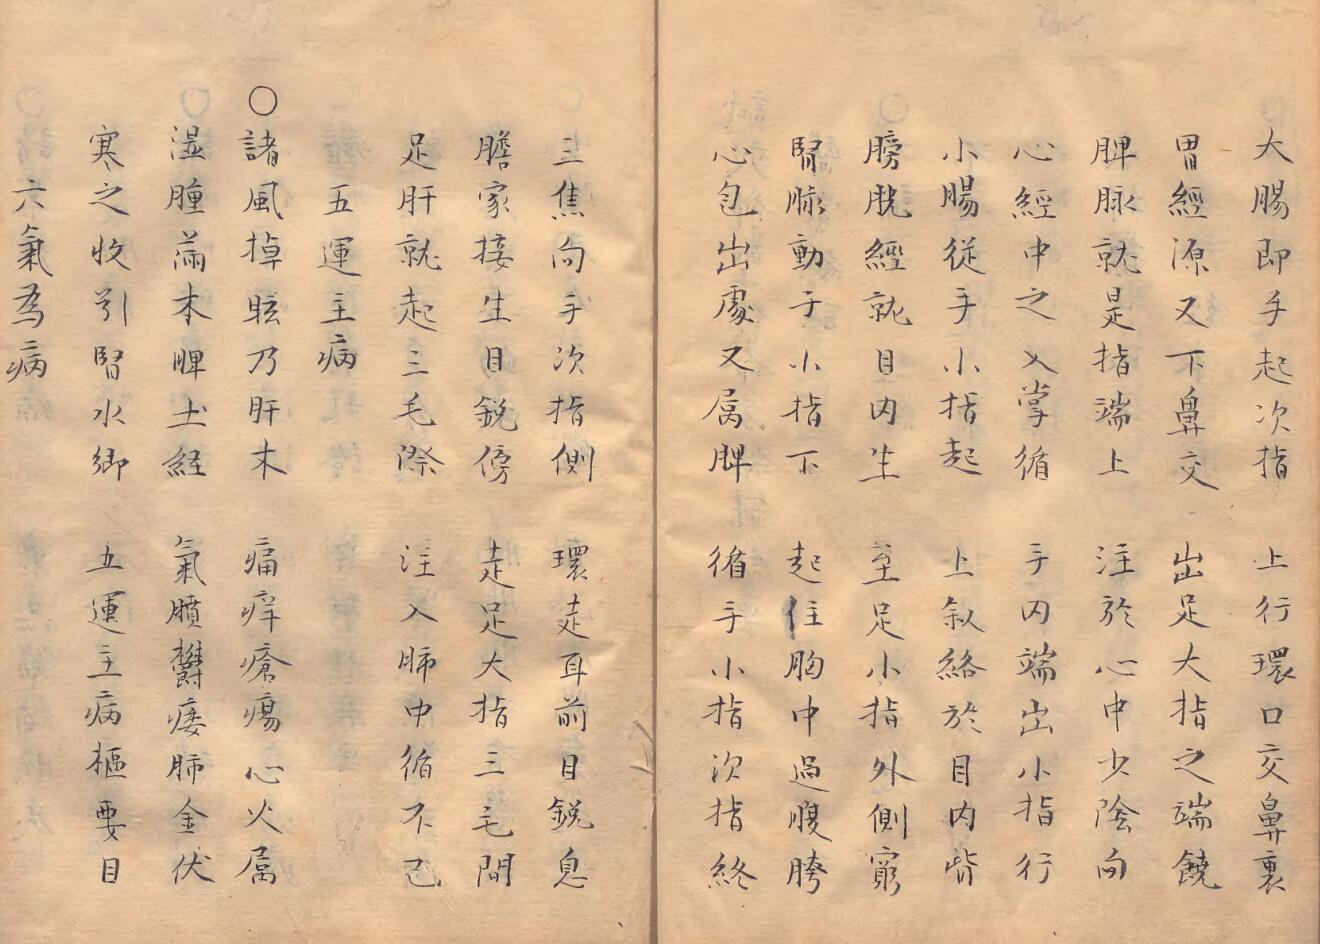 大腸即手起次指 上行環口交鼻裏
胃經源又下鼻交 出足大指之端饒
脾脉就是指端上 注於心中少陰向
心經中之入掌循 手内端出小指行
小腸從手小指起 上叙絡於目内眥
膀胱經就目内生 至足小指外側窮
腎脉動于小指下 起住胸中過腹胯
心包出處又属脾 循手小指次指終
三焦向手次指側 環走耳前目鋭息
膽家接生目鋭傍 走足大指三毛間
足肝就起三毛際 注入肺中循不已
五運主病
○諸風掉眩乃肝木 痛痒瘡瘍心火属
湿腫滿本脾土経 氣膹欝痿肺金伏
寒之收引腎水鄉 五運主病樞要目
六氣為病